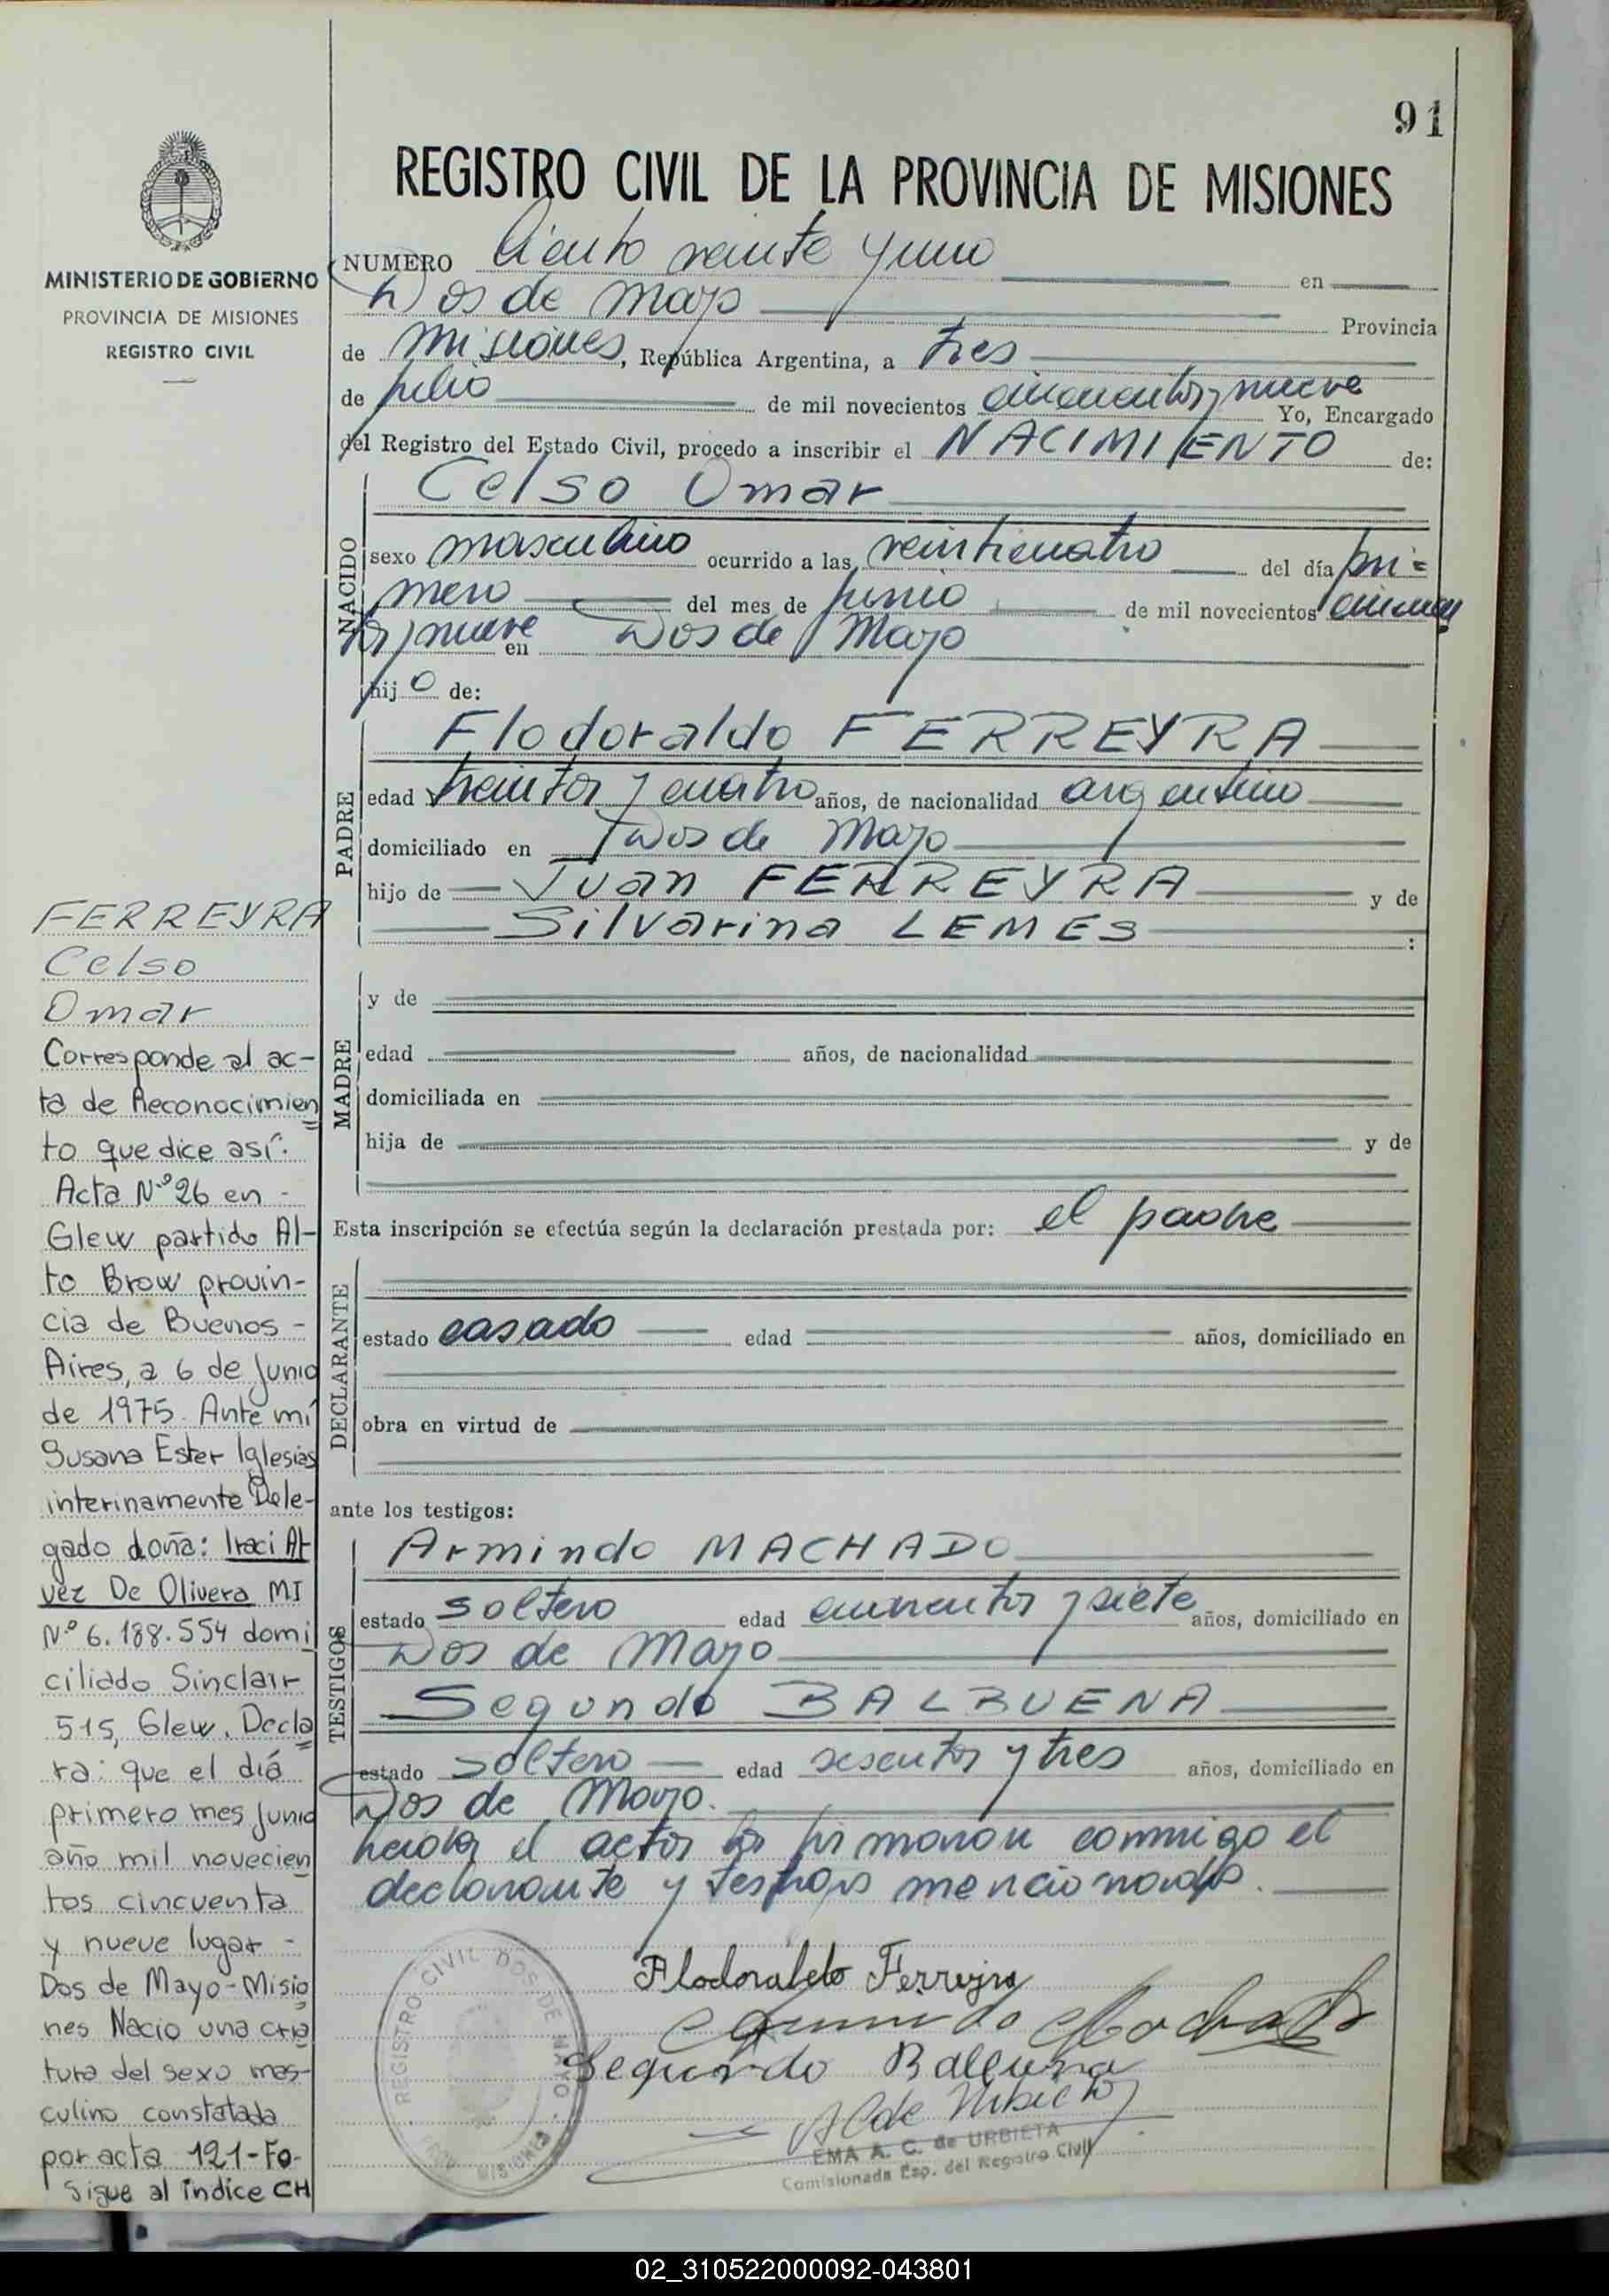 91
REGISTRO CIVIL DE LA PROVINCIA DE MISIONES
MINISTERIO DE GOBIERNO
PROVINCIA DE MISIONES
REGISTRO CIVIL
NUMERO Ciento veinte y uno en
Dos de Mayo Provincia
de Misiones, República Argentina, a tres
de julio de mil novecientos cincuenta y nueve Yo, Encargado
del Registro del Estado Civil, procedo a inscribir el NACIMIENTO de:
NACIDO
Celso Omar
sexo masculino ocurrido a las veinticuatro del día pri=
mero del mes de junio de mil novecientos cincuen
ta y nueve en Dos de Mayo
hijo de:
PADRE
Flodoraldo FERREYRA
edad treinta y cuatro años, de nacionalidad argentino
domiciliado en Dos de Mayo
hijo de Juan FERREYRA y de
Silvarina LEMES :
MADRE
y de
edad años, de nacionalidad
domiciliada en
hija de y de
Esta inscripción se efectúa según la declaración prestada por: el padre
DECLARANTE
estado casado edad años, domiciliado en
obra en virtud de
ante los testigos:
TESTIGOS
Armindo MACHADO
estado soltero edad cincuenta y siete años, domiciliado en
Dos de Mayo
Segundo BALBUENA
estado soltero edad sesenta y tres años, domiciliado en
Dos de Mayo.
el acta la firmaron conmigo el
declarante y testigos mencionados.
Flodoraldo Ferreyra
Segundo Balbuena
REGISTRO CIVIL DOS DE MAYO
MISIONES
EMA A. C. de URBIETA
Comisionada Esp. del Registro Civil
FERREYRA
Celso
Omar
Corresponde al ac-
ta de Reconocimien
to que dice así:
Acta Nº 26 en -
Glew partido Al-
to Brow provin-
cia de Buenos -
Aires, a 6 de Junio
de 1975. Ante mí
Susana Ester Iglesias
interinamente Dele-
gado doña: Iraci Al
vez De Olivera MI
Nº 6.188.554 domi
ciliado Sinclair
515, Glew. Decla
ra: que el día
primero mes Junio
año mil novecien
tos cincuenta
y nueve lugar -
Dos de Mayo-Misio
nes Nacio una cria
tura del sexo mas-
culino constatada
por acta 121-Fo-
Sigue al índice CH
02_310522000092-043801